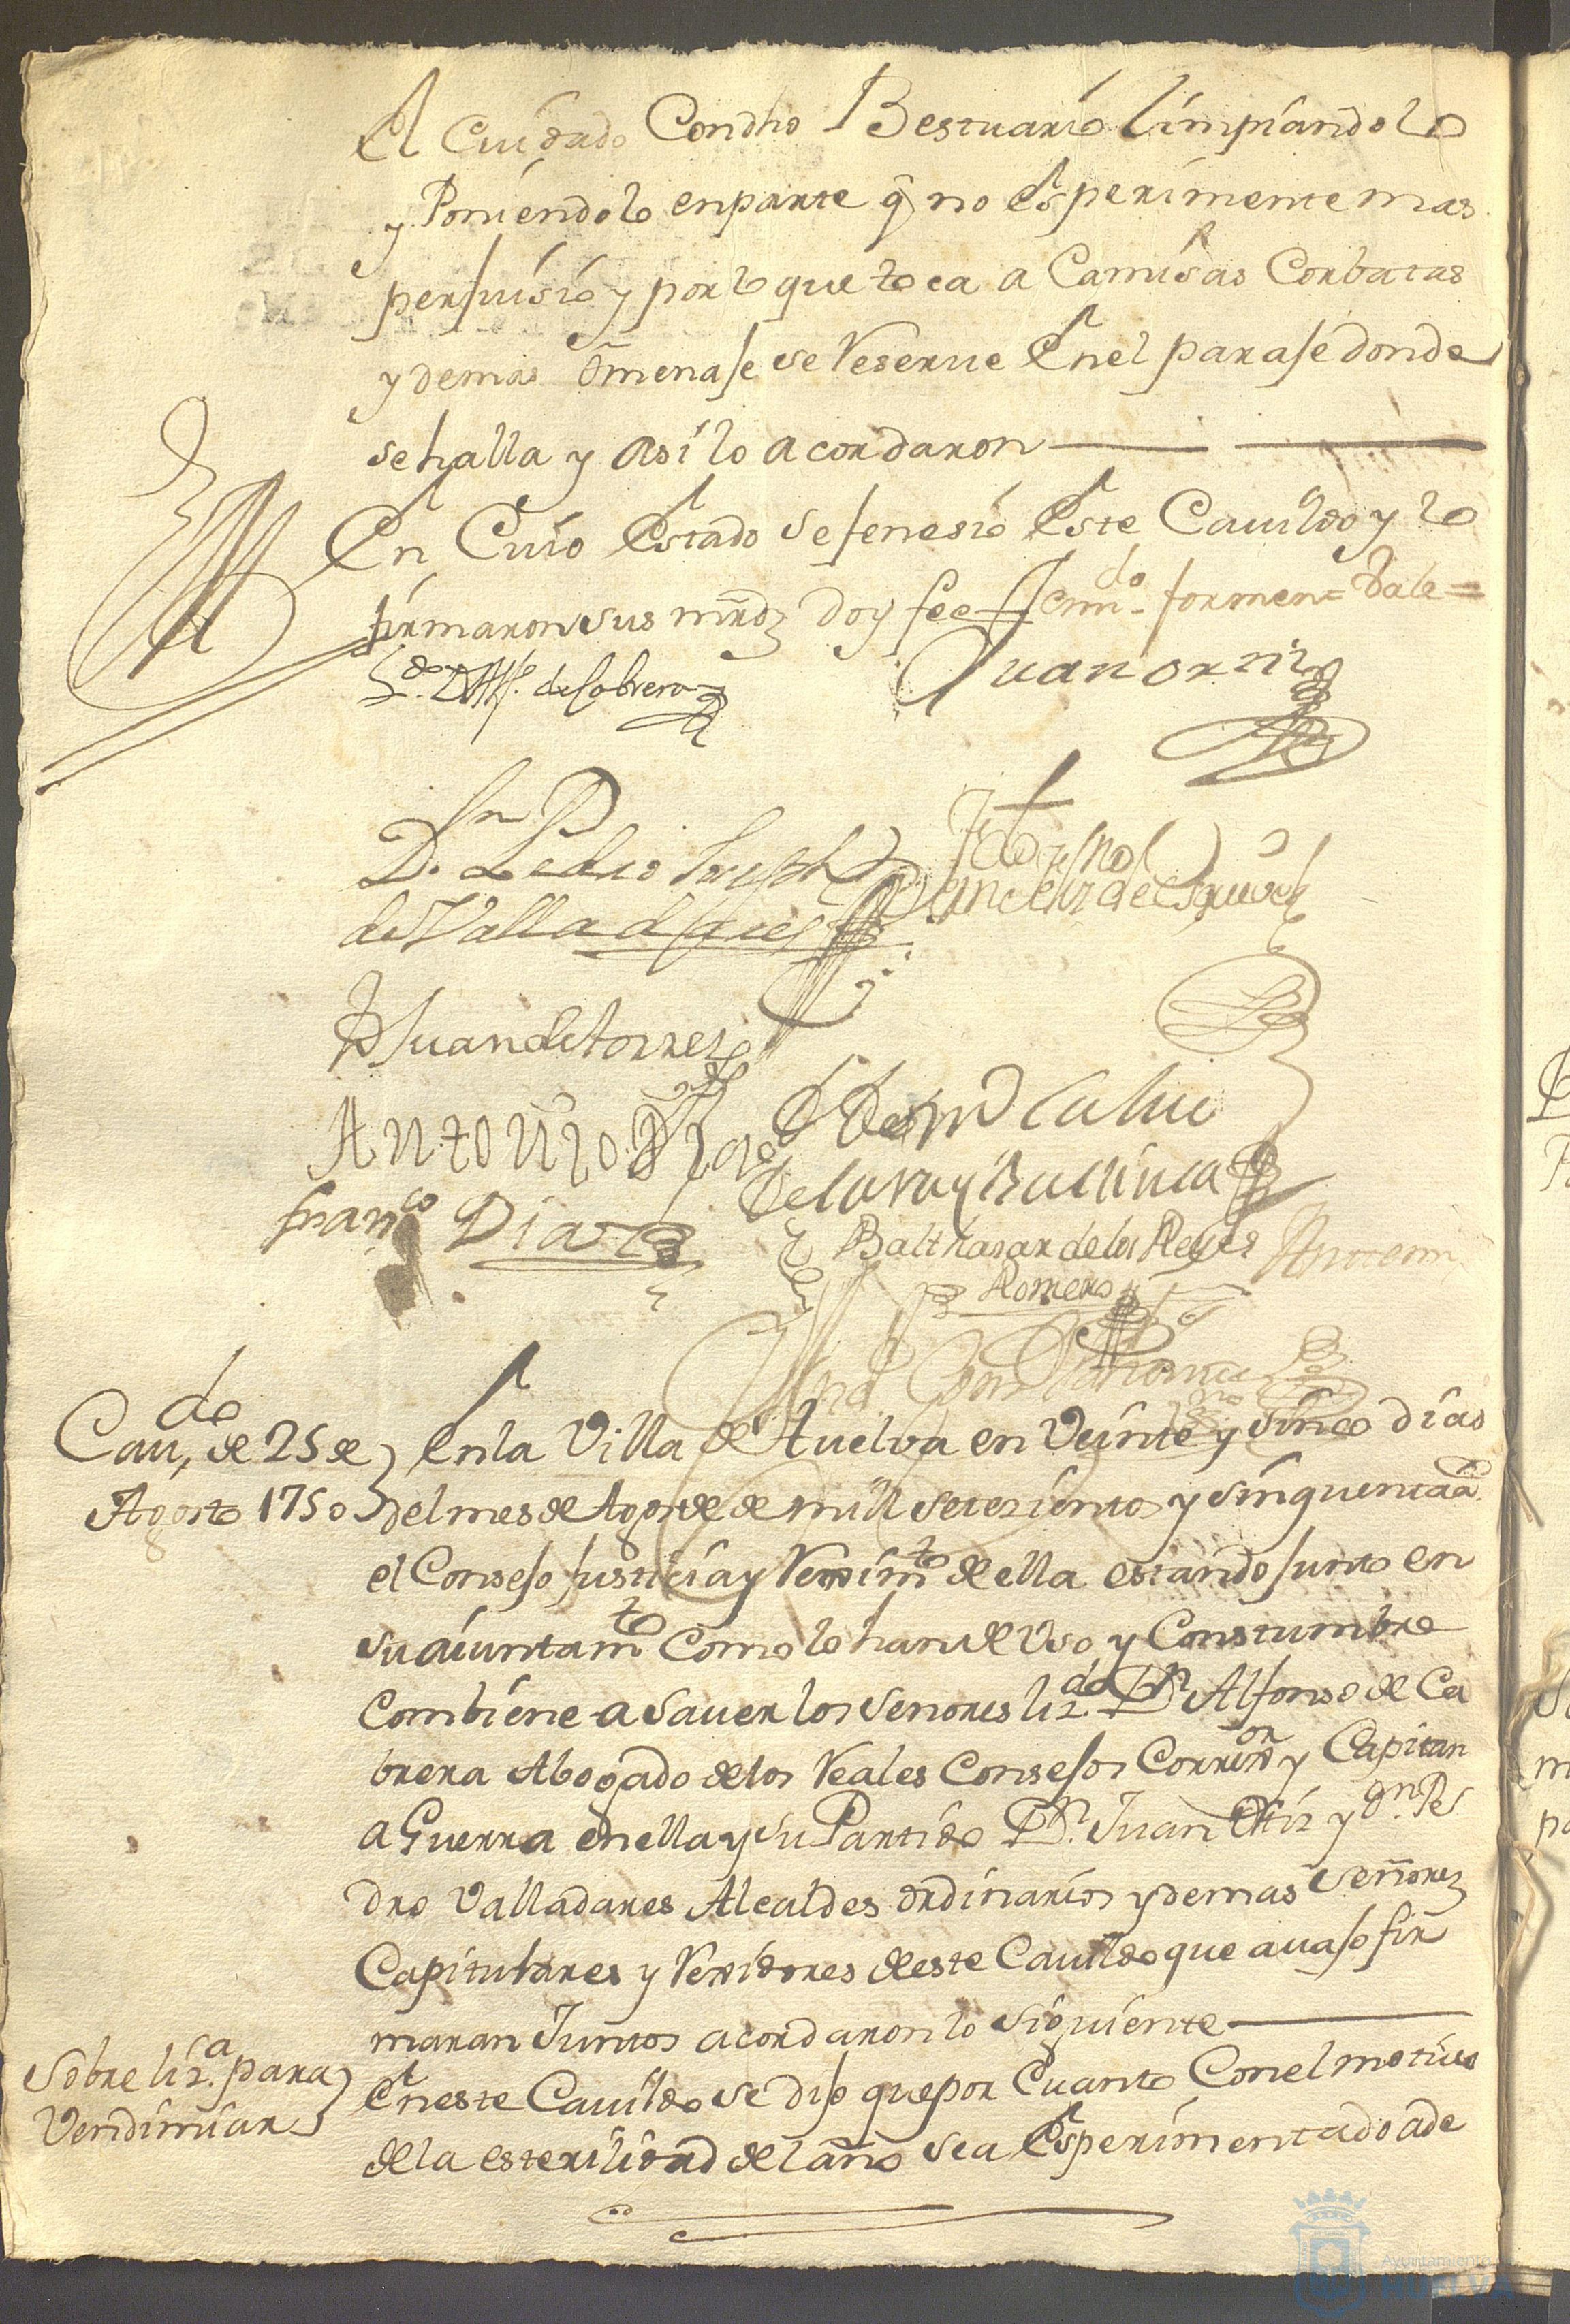 el Cuidado Condho Bestuario limpiandolo
y Poniendolo enparte q̃ no esperimente mas
perjuisio y por lo que toca a Camisas Corbatas
y demas omenaje se Reserue en el paraje donde
se halla y asi lo acordaron
En Cuio estado se fenesio este Cauildo y lo
firmaron sus mrds doy fee = enmdo = = Vale =
Ldo. D. Alfo. de Cabrera
Juan ortiz
Dn. Pedro Joseph
de Valladares
Sanchez de esquivel
Juan de torres
Antonio Diaz
Franco Diaz
Balthasar de los Reyes
Romero
Ante mi
Caudo. de 25 de
Agosto 1750
en la Villa de Huelva en Veinte y sinco dias
del mes de Agosto de mill setesientos y sinquenta a
el Consejo justicia y Rejimto de ella estando junto en
su aiuntamto Como lo han de Vso y Constumbre
Combiene a sauer los senores lizdo. Dn Alfonso de Ca
brera Abogado de los Reales Consejos Correxor y Capitan
a Guerra en ella y su Partido Dn. Juan Ortiz y Dn. Pe
dro Valladares Alcaldes ordinarios y demas señores
Capitulares y Rexidores de este Cauildo que auajo fir
maran Juntos acordaron lo siguiente
Sobre liza. para
Vendimiar
En este Cauildo se dijo que por Cuanto Con el motiuo
de la esterilidad del año se a Esperimentado a de
Ayuntamiento
HUELVA